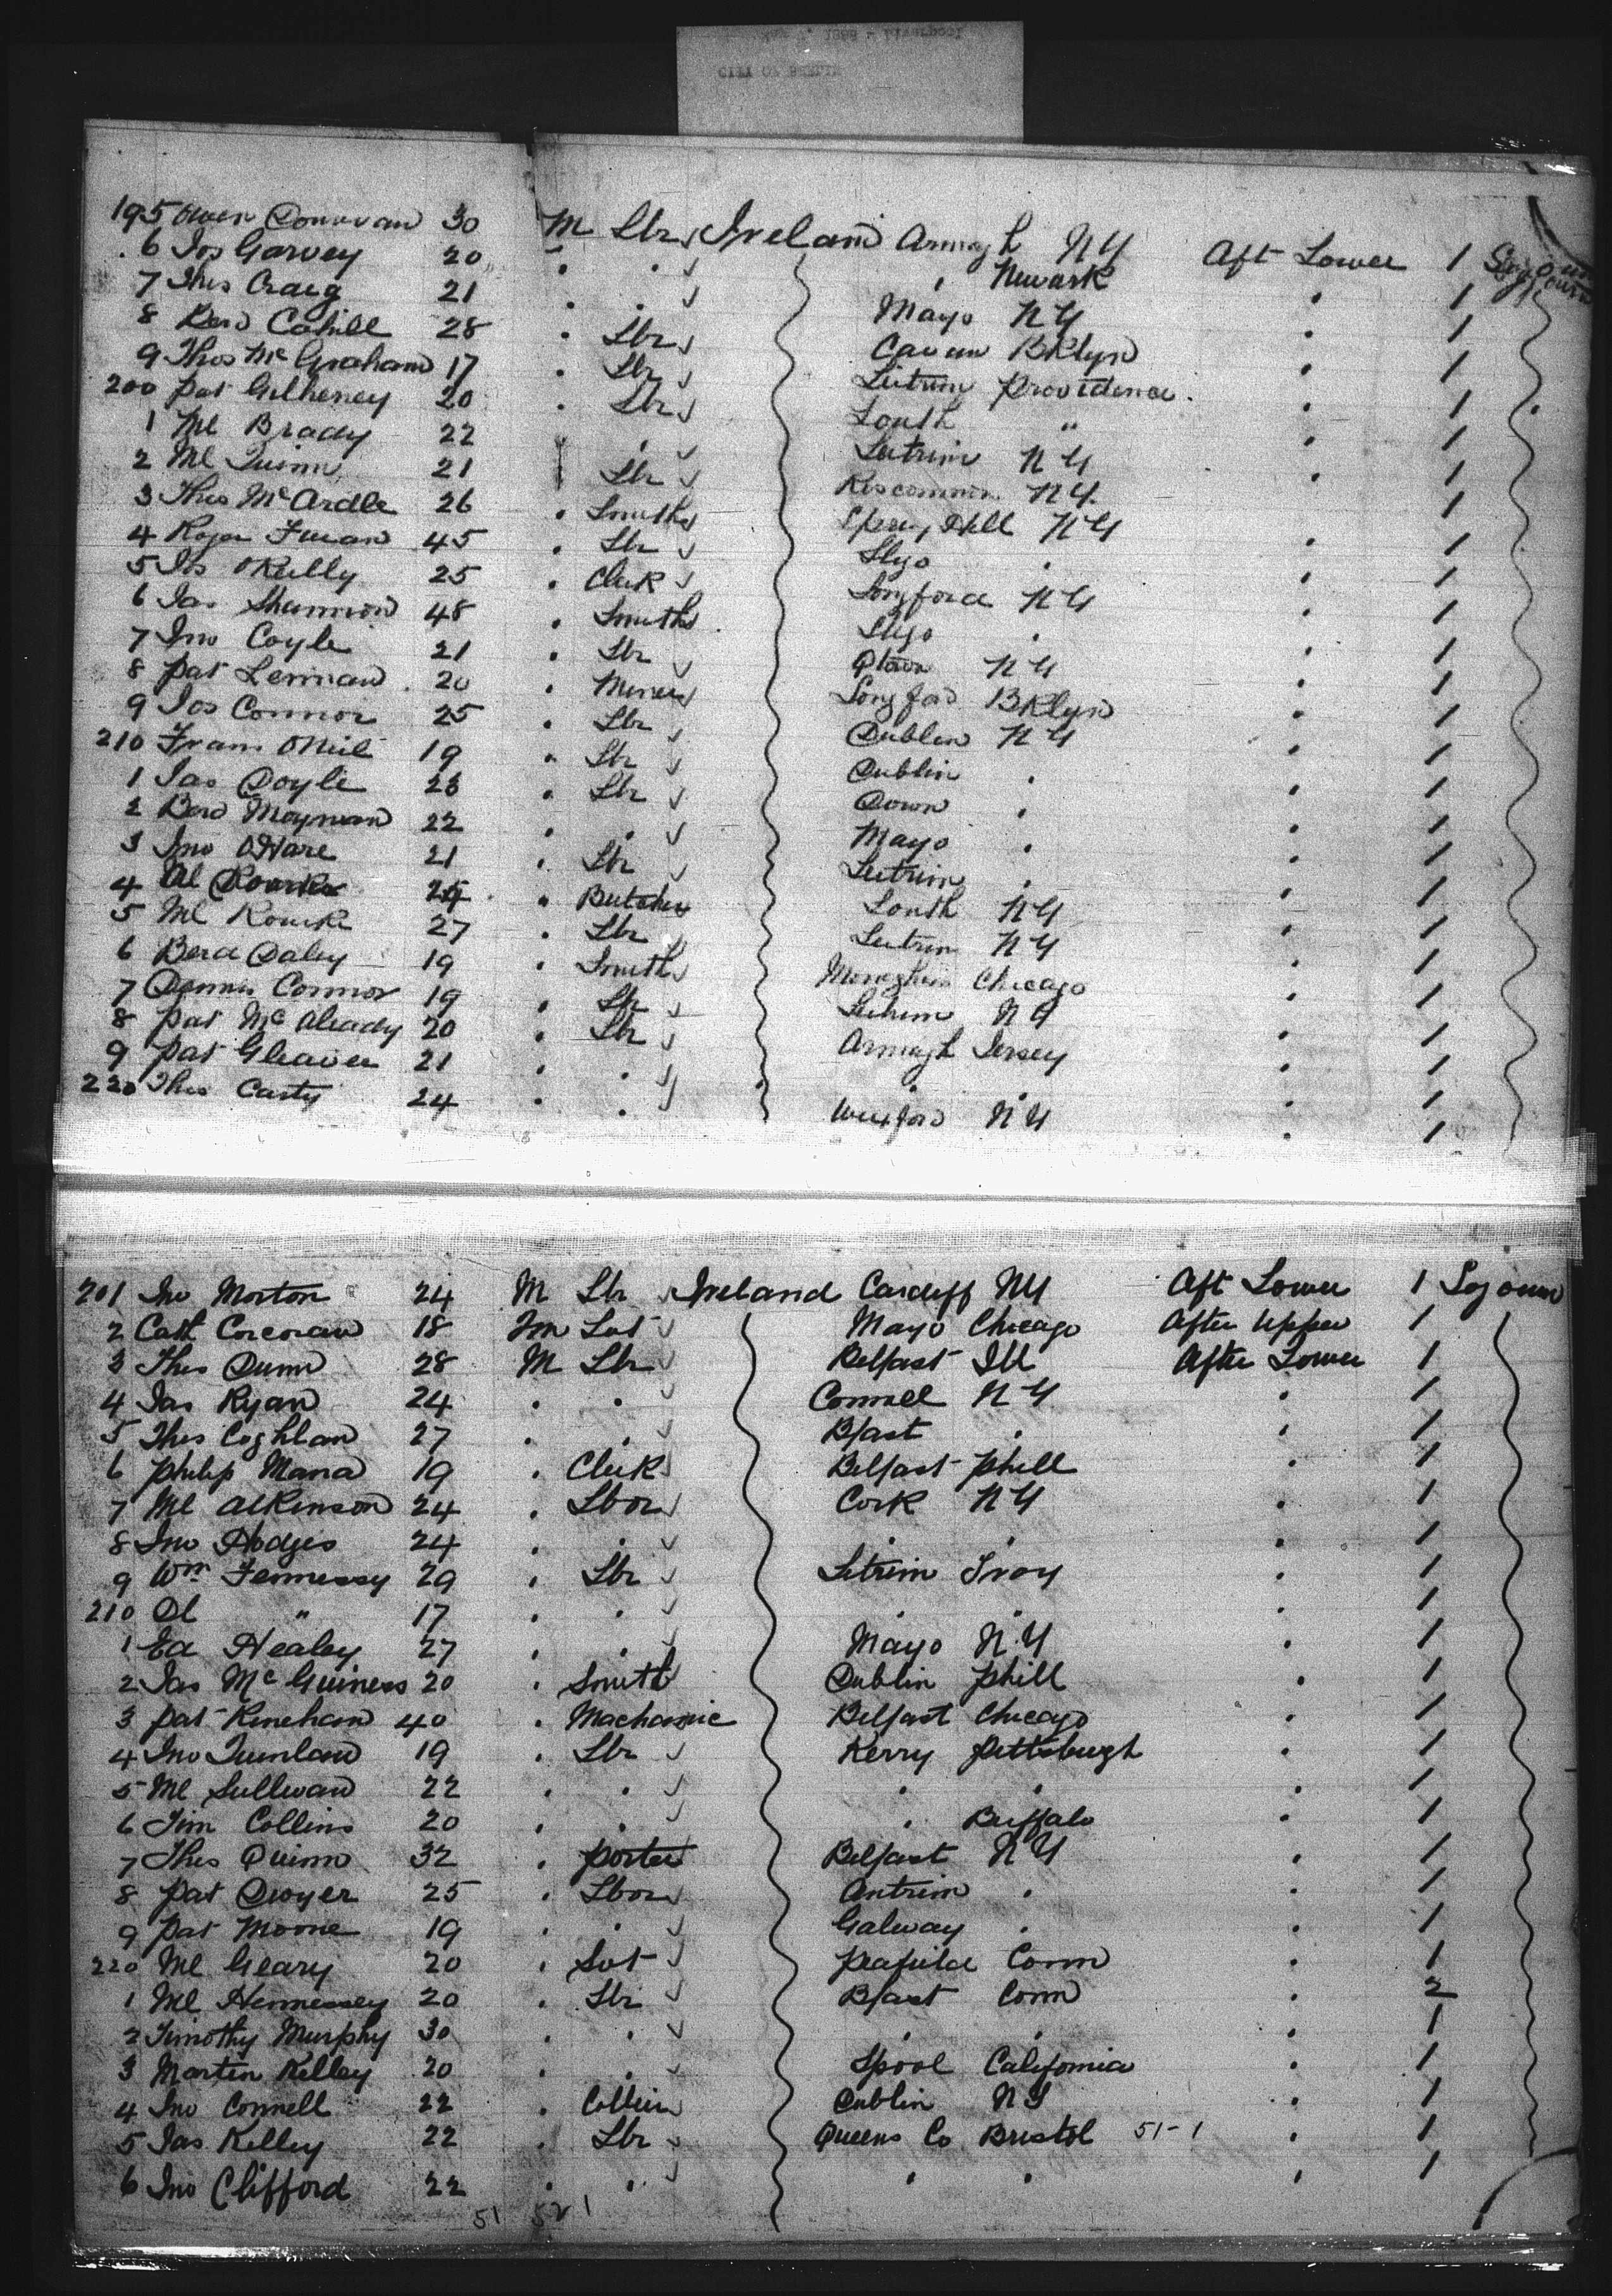 195 Owen Donovan 30 M Lbr Ireland Armagh NY Aft Lower 1 Sojourn
6 Jos Garvey 20 . . . Newark 1
7 Thos Craig 21 . . Mayo NY . 1
8 Berd Cahill 28 . Lbr Cavan BKlyn . 1
9 Thos McGraham 17 . Lbr Leitrim Providence . 1
200 Pat Gilheney 20 . Lbr Louth " . 1
1 Ml Brady 22 . Leitrim NY . 1
2 Ml Quinn 21 Lbr Roscommon NY . 1
3 Thos McArdle 26 . Smith Hill NY 1
4 Roger 45 . Lbr Sligo . . 1
5 Jos OReilly 25 . Clerk Longford NY . 1
6 Jas Shannon 48 . Smith Sligo . . 1
7 Jno Coyle 21 . Lbr NY . 1
8 Pat Lennan 20 . Miner Longford BKlyn . 1
9 Jos Connor 25 . Lbr Dublin NY . 1
210 Frans ONeil 19 . Lbr Dublin . . 1
1 Jas Doyle 23 . Lbr Down . . 1
2 Berd 22 . . Mayo . . 1
3 Jno OHare 21 . Lbr Leitrim . . 1
4 24 . Butcher Louth NY . 1
5 Ml Rourke 27 . Lbr Leitrim NY . 1
6 Berd Daley 19 . Smith Monaghan Chicago . 1
7 Dennis Connor 19 . Lbr NY . 1
8 Pat 20 . Lbr Armagh Jersey . 1
9 Pat 21 . . . . . 1
220 Thos Carty 24 . . Wexford NY . 1
201 Jno Morton 24 M Lbr Ireland Cardiff NY Aft Lower 1 Sojourn
2 Cath Corcoran 18 Mayo Chicago After Upper 1
3 Thos Dunn 28 M Lbr Belfast Ill After Lower 1
4 Jas Ryan 24 . . Connell NY . 1
5 Thos Coghlan 27 . . Bfast . . 1
6 Philip Mana 19 . Clerk Belfast Phill . 1
7 Ml Atkinson 24 . Lbor Cork NY . 1
8 Jno Hodges 24 . . . . . 1
9 Wm Fennessy 29 . Lbr Letrim Troy . 1
210 Dl " 17 . . . . . 1
1 Ed Healey 27 . . Mayo N.Y . 1
2 Jas McGuiness 20 . Smith Dublin Phill . 1
3 Pat Kinehan 40 . Machanic Belfast Chicago . 1
4 Jno Quinlan 19 . Lbr Kerry Pittsburgh . 1
5 Ml Sullivan 22 . . . . . 1
6 Tim Collins 20 . . . Buffalo . 1
7 Thos Quinn 32 . Porter Belfast NY . 1
8 Pat Dwyer 25 . Lbor Antrim . . 1
9 Pat Moone 19 . . Galway . . 1
220 Ml Geary 20 . Conn . 1
1 Ml Hennessey 20 . Lbr Bfast Conn . 2
2 Timothy Murphy 30 . . . . . 1
3 Marten Kelley 20 . . Lpool California . 1
4 Jno Connell 22 . Collier Dublin NY . 1
5 Jas Kelley 22 . Lbr Queens Co Bristol 51-1 . 1
6 Jno Clifford 22 . . . . . 1
51 52 1